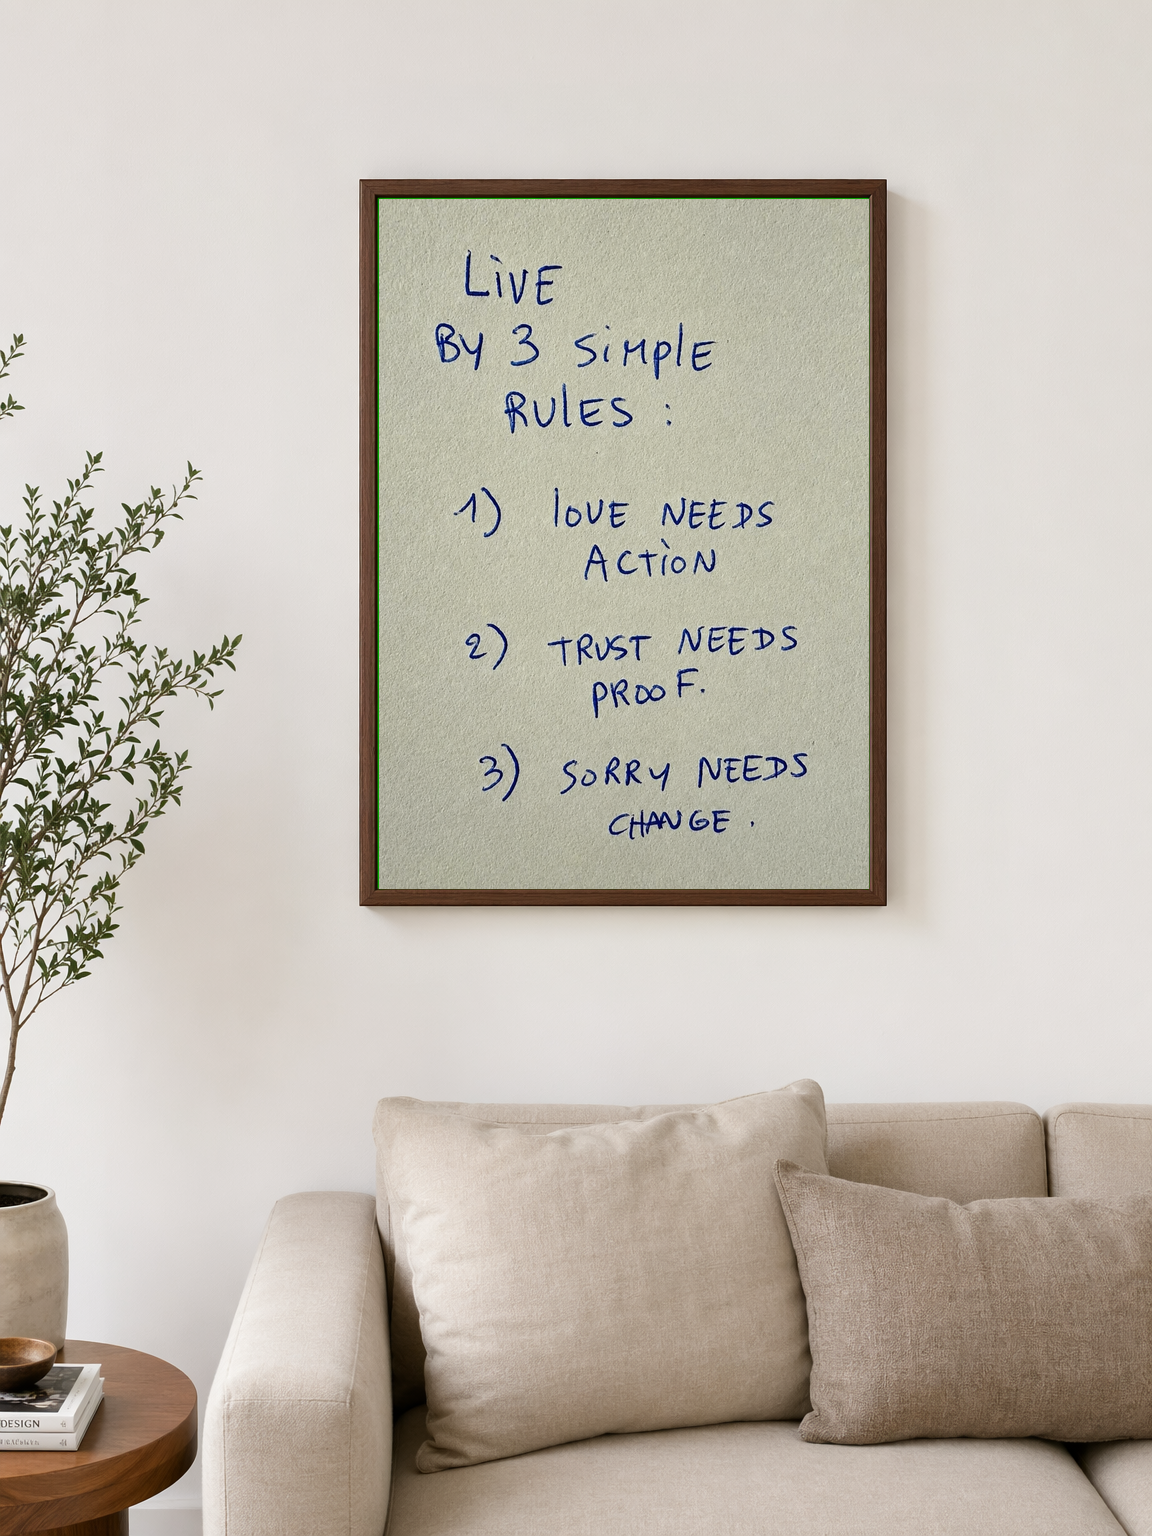 LiVE
BY 3 SiMPlE
RUlES :
1) lOVE NEEDS
ACTiON
2) TRUST NEEDS
PROOF.
3) SORRY NEEDS
CHANGE .
DESIGN